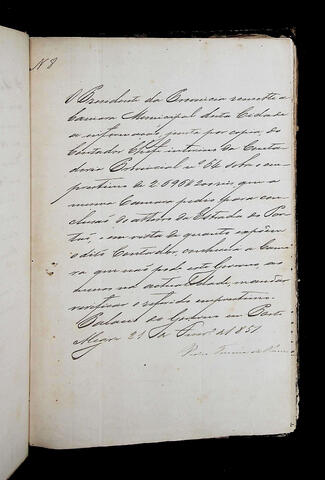 N 8
O Presidente da Provincia remette a
Camara Municipal desta Cidade
a informação junta por copia, do
Contador Chefe interino da Conta-
doria Provincial nº 64 sobre o em-
prestimo de 2:096$000 reis, que a
mesma Camara pedio para con-
clusão do aterro da Estrada do Por-
tão, e em vista de quanto expõem
o dito Contador, conhecerá a Cama-
ra que não pode este Governo, ao
menos no actual estado, mandar
realisar o referido emprestimo.
Palacio do Governo em Porto
Alegre 21 de Fever.º de 1851